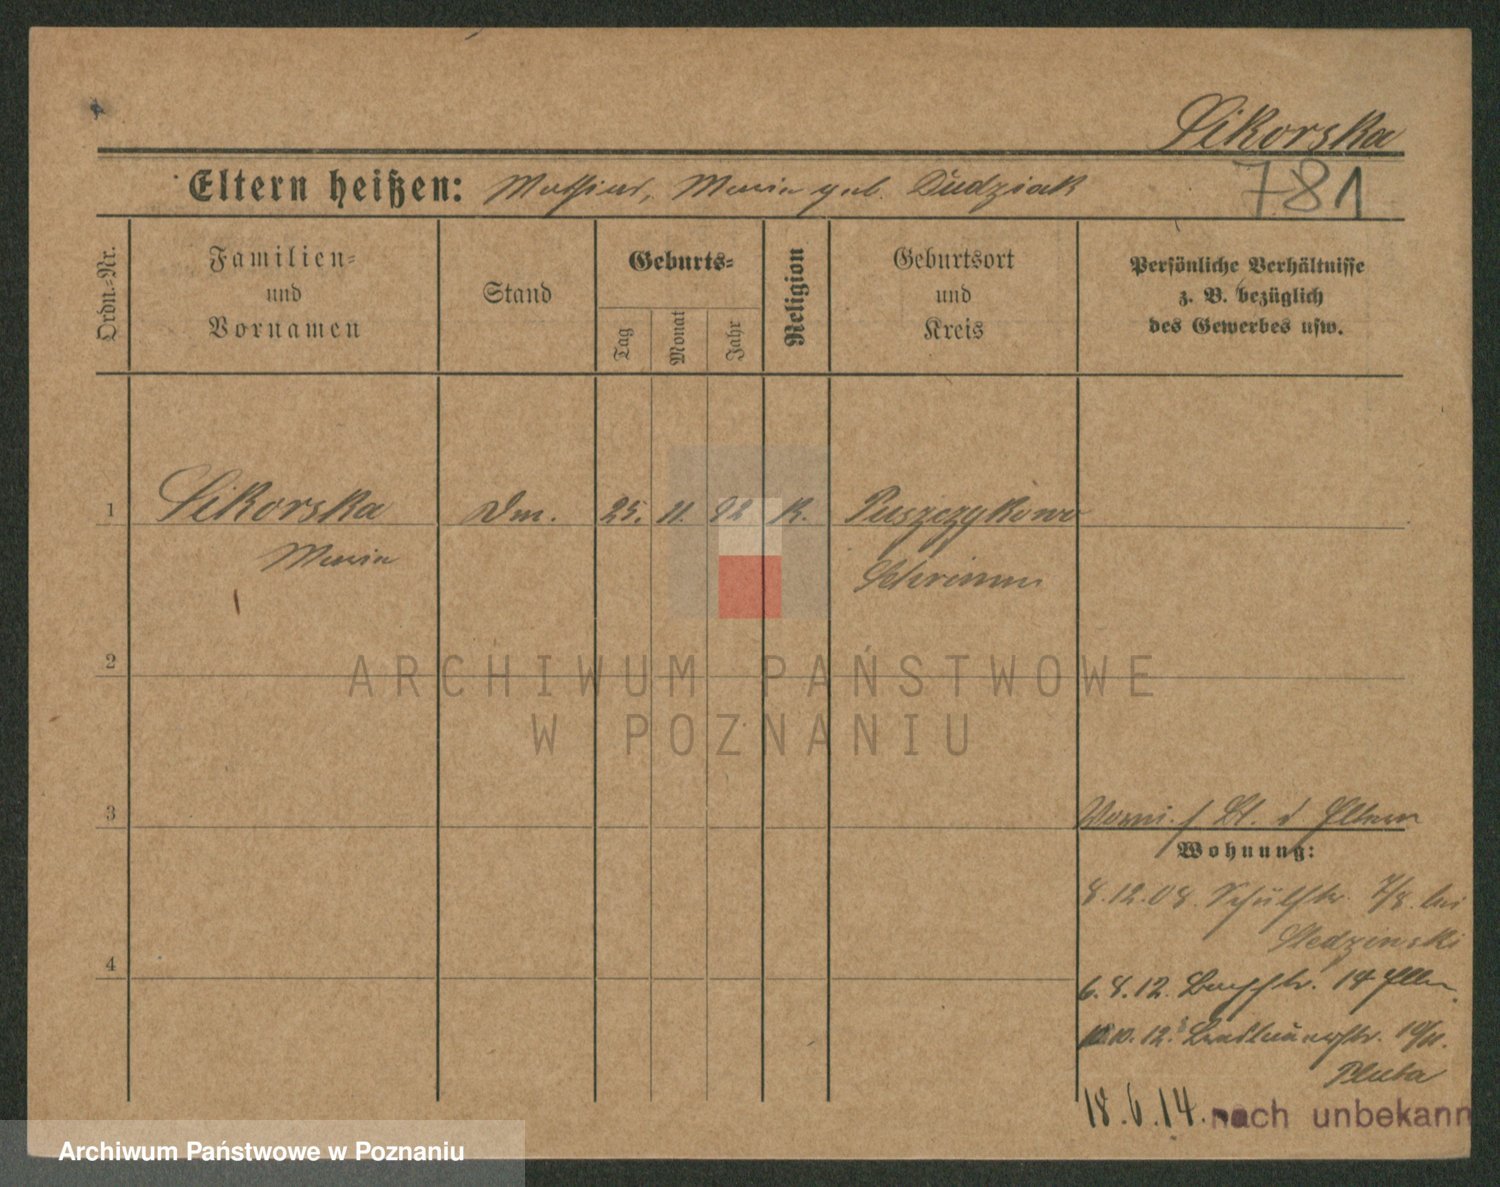 Sikorska
781
Eltern heißen: Mathias, Maria geb. Dudziak
Ordn.-Nr.
Familien-
und
Vornamen
Stand
Geburts-
Tag
Monat
Jahr
Religion
Geburtsort
und
Kreis
Persönliche Verhältnisse
z. B. bezüglich
des Gewerbes usw.
1 Sikorska Dm. 25. 11. 92 K. Puszczykowo
Maria Schrimm
2
ARCHIWUM PAŃSTWOWE
W POZNANIU
3
d Eltern
Wohnung:
8.12.08. Schulstr. 7/8. bei
4
6.8.12. 14 Eltern
10.12. 10/11.
18.6.14. nach unbekann
Archiwum Państwowe w Poznaniu